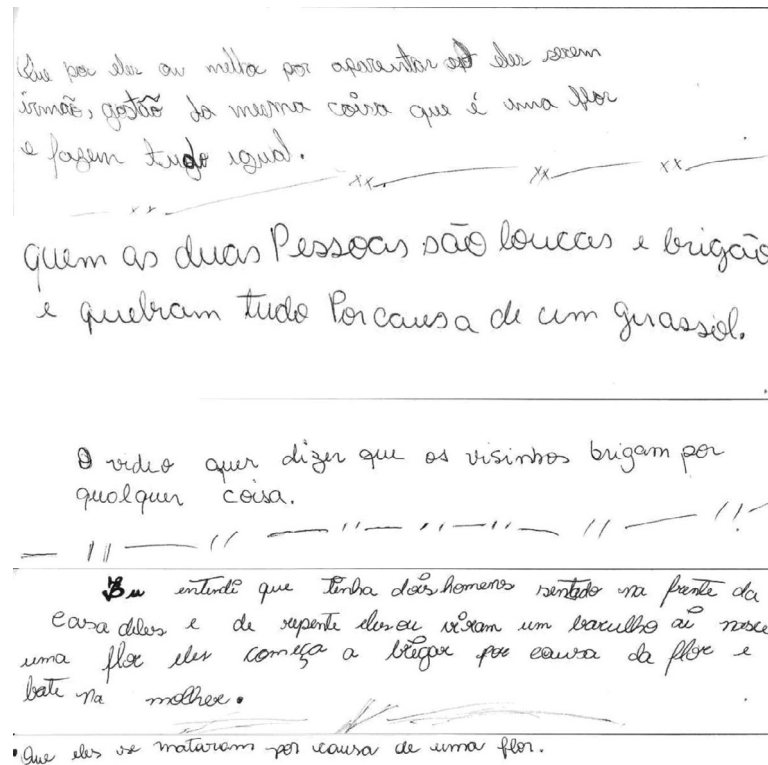 Que por eles ou melhor por aparentar eles serem
irmão, gostão da mesma coisa que é uma flor
e fazem tudo igual.
xx xx xx
xx
quem as duas Pessoas são loucas e brigão
e quebram tudo Por causa de um girassol.
O video quer dizer que os visinhos brigam por
qualquer coisa.
Eu entendi que tinha dois homens sentado na frente da
casa deles e de repente eles ou viram um barulho ai nasce
uma flor eles começa a brigar por causa da flor e
bate na molher.
Que eles se mataram por causa de uma flor.